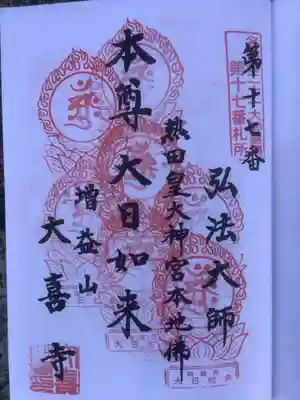 第十七番
第十七番札所
弘法大師
熱田皇大神宮本地佛
本尊大日如来
増益山
大喜寺